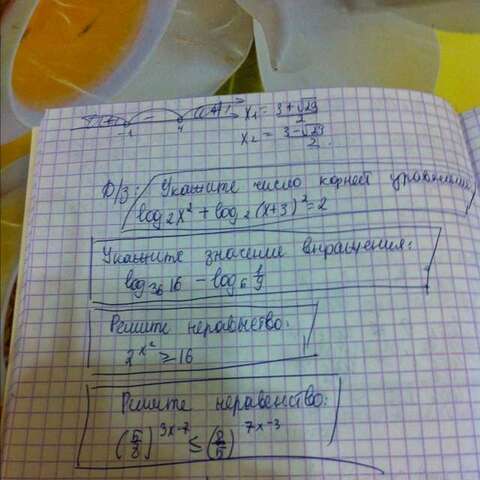 -1 - 4 x₁ = (3+√29)/2
x₂ = (3-√29)/2
Д/з: Укажите число корней уравнения
log₂x² + log₂(x+3)² = 2
Укажите значение выражения:
log₃₆16 - log₆ 1/9
Решите неравенство:
2^(x²) ≥ 16
Решите неравенство:
(5/8)^(3x-7) ≤ (8/5)^(7x-3)